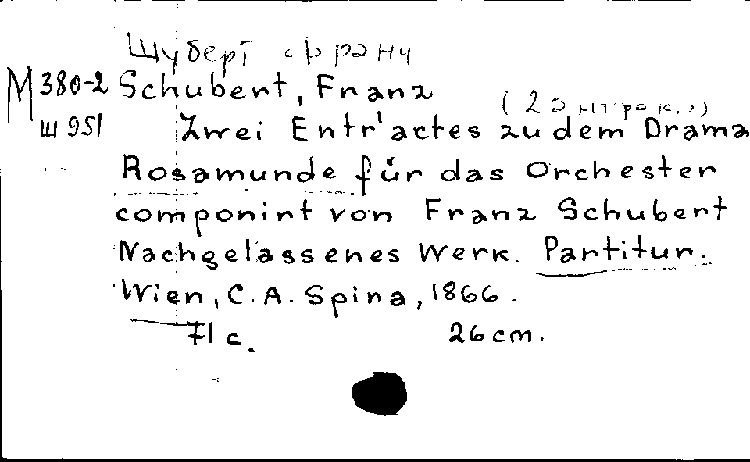 Шуберт Франц
М 380-2 Schubert, Franz
(2 антракта)
Ш 951 Zwei Entr'actes zu dem Drama
Rosamunde für das Orchester
componint von Franz Schubert
Nachgelassenes Werk. Partitur.
Wien, C. A. Spina, 1866.
71 c. 26 cm.